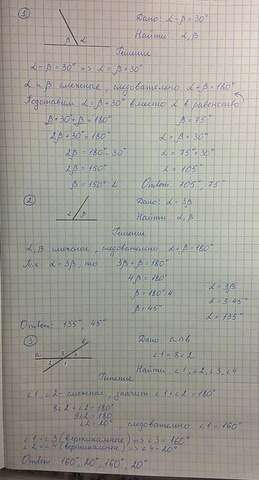 ① Дано: α-β=30°
β α
Найти: α,β
Решение
α-β=30° => α=β+30°
α и β смежные, следовательно α+β=180°
Подставим α=β+30° вместо α в равенство
β+30°+β=180° β=75°
2β+30°=180° α=β+30°
2β=180°-30° α=75°+30°
2β=150° α=105°
β=150°:2 Ответ: 105°, 75°
② Дано: α=3β
α β
Найти: α,β
Решение
α,β смежные, следовательно α+β=180°
Т.к α=3β, то 3β+β=180°
4β=180° α=3β
β=180°:4 α=3·45°
β=45° α=135°
Ответ: 135°, 45°
③ Дано: a∩b
a b
∠1=8∠2
Найти: ∠1,∠2,∠3,∠4
Решение
∠1,∠2- смежные, значит ∠1+∠2=180°
8∠2+∠2=180°
9∠2=180
∠2=20° следовательно ∠1=160°
∠1=∠3 (вертикальные) => ∠3=160°
∠2=∠4 (вертикальные) => ∠4=20°
Ответ: 160°, 20°, 160°, 20°